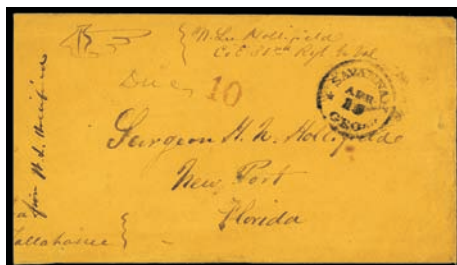 W. L. Hollifield
Co. E 31st Regt Ga Vol
Due 10
SAVANNAH
APR
GEO.
Surgeon H. N. Hollifield
New Port
Florida
from W. L. Hollifield
Tallahassee